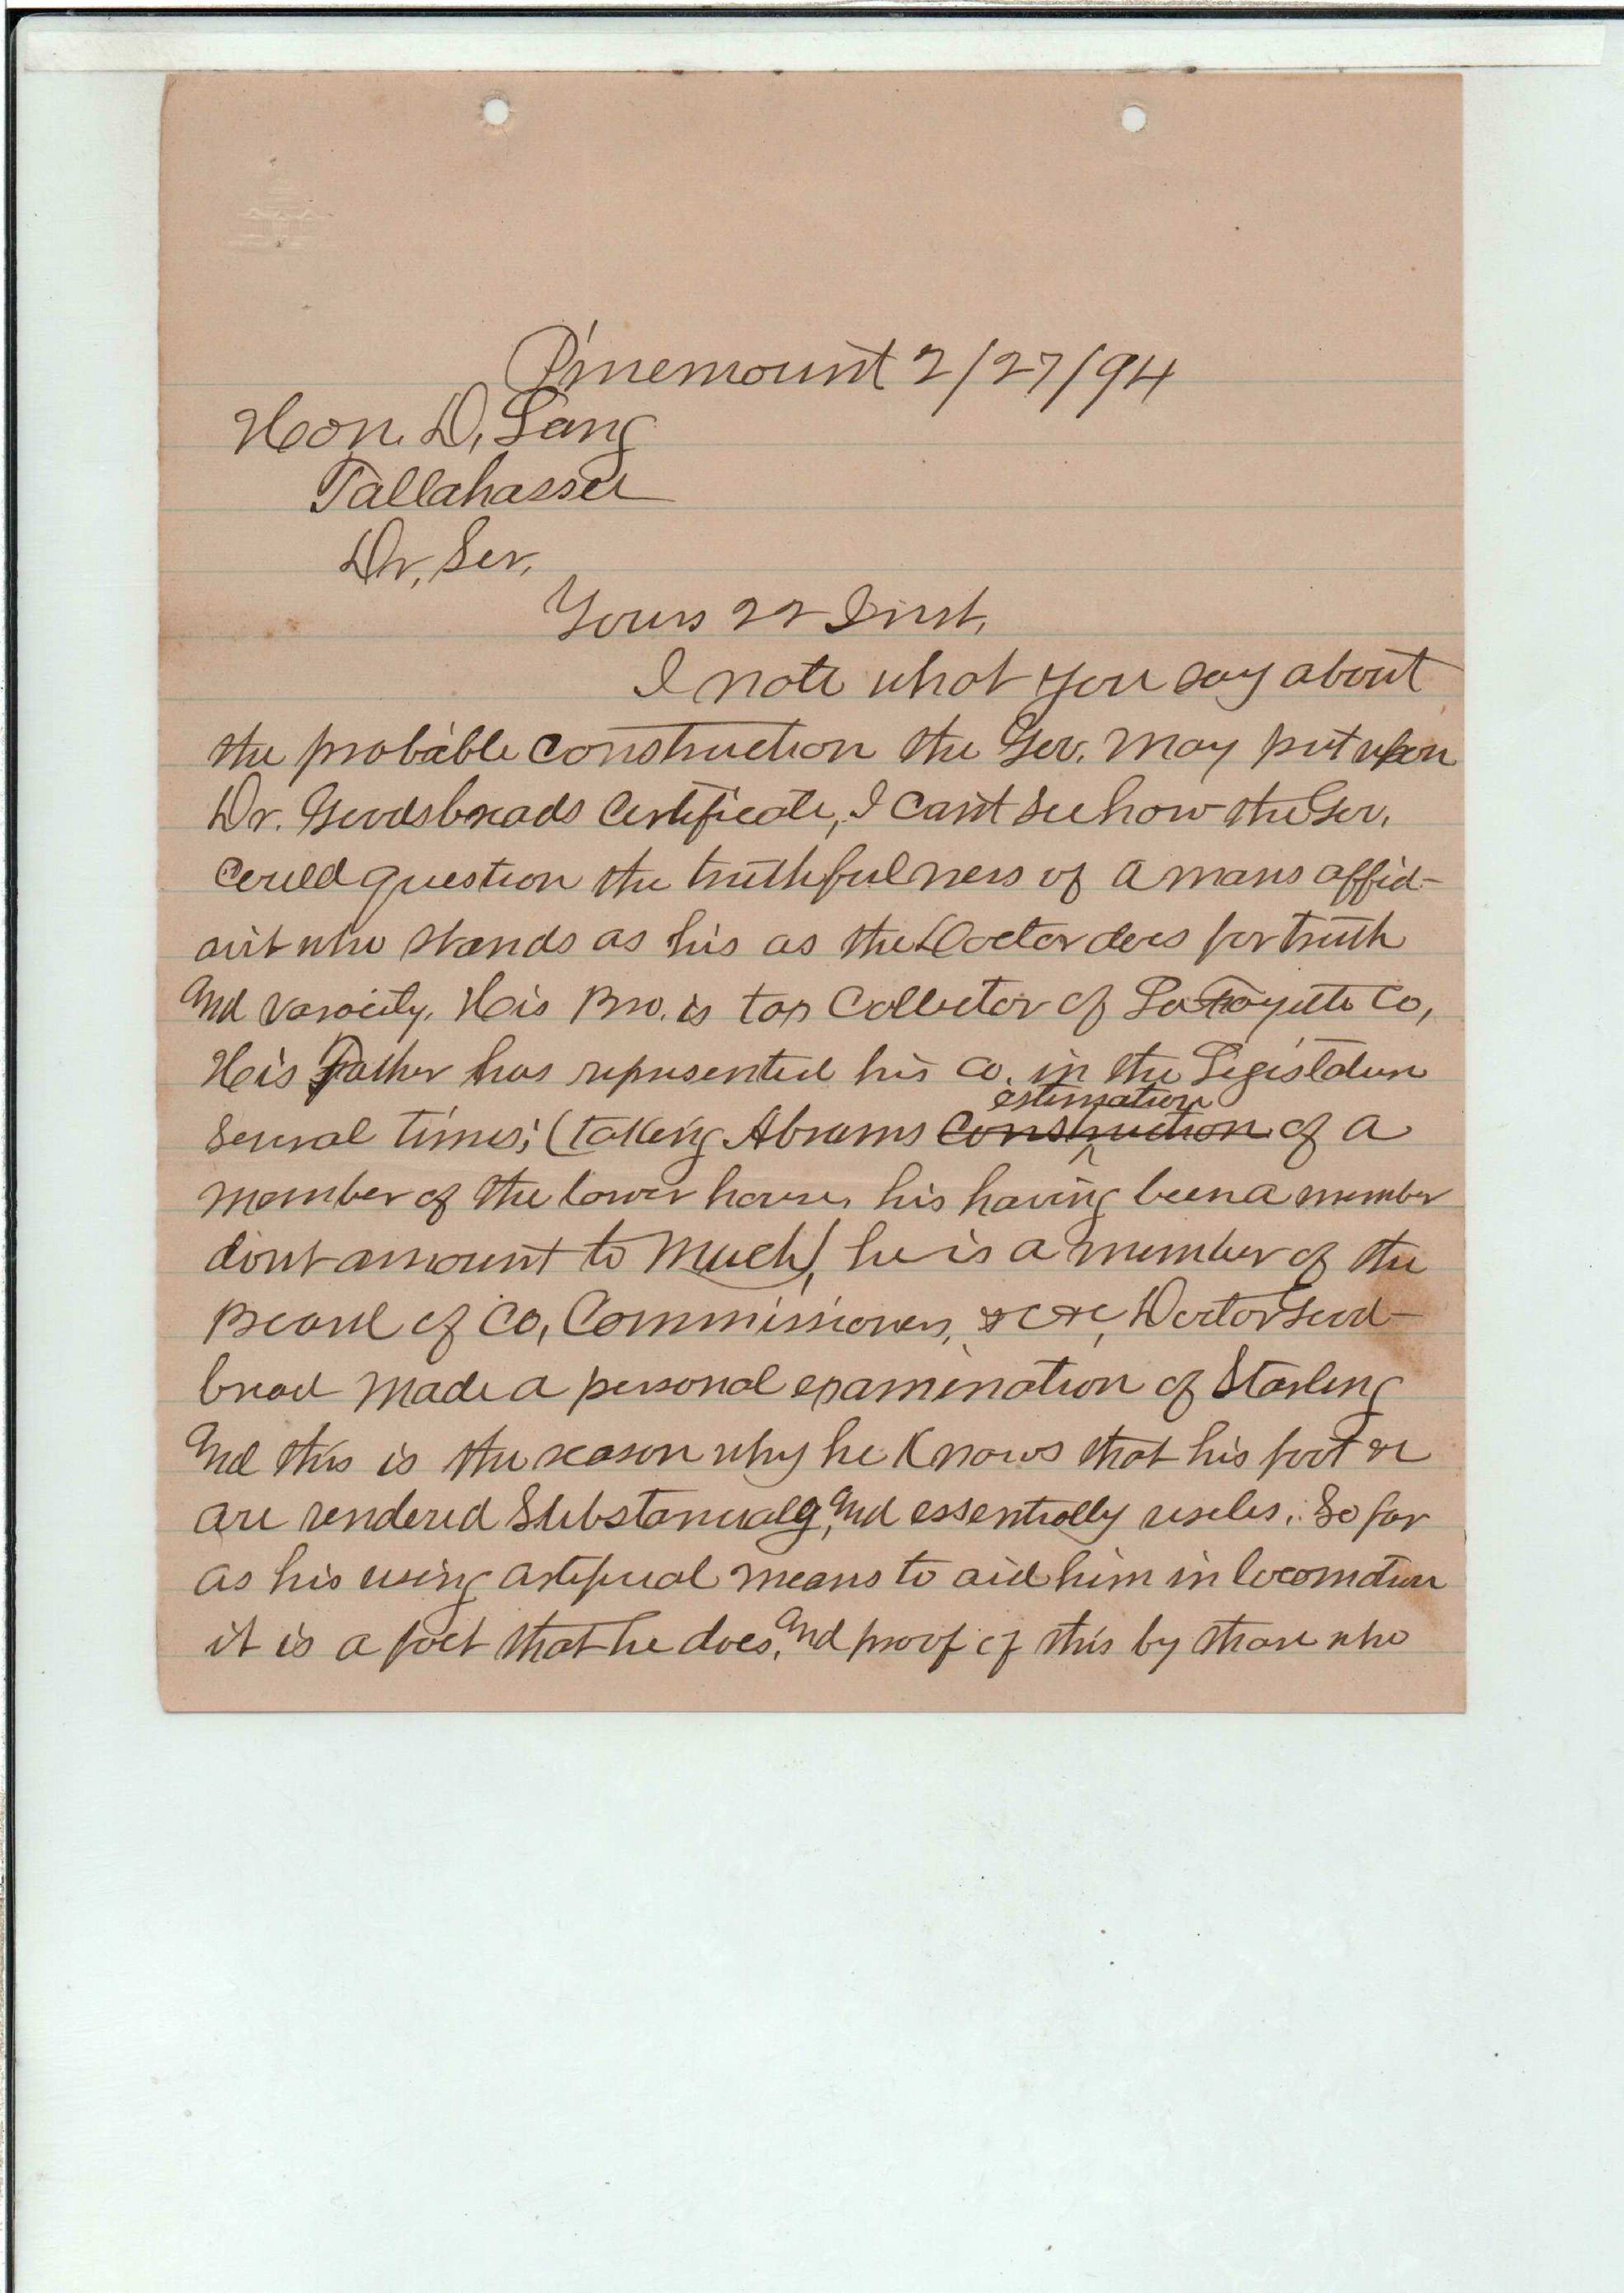 Pinemount 2/27/94
Hon. D, Lang
Tallahassee
Dr, Ser,
Yours 22 Inst,
I note what you say about
the probable construction the Gov. May put upon
Dr. Goodsbreads Certificate, I cant see how the Gov,
Could question the truthfulness of a mans affid-
avit who stands as his as the Doctor does for truth
And varacity. His Bro. is tax Collector of LaFayette Co,
His Father has represented his Co. in the Legislature
several times; (taking Abrams estimation of a
member of the lower house, his having been a member
dont amount to Much), he is a member of the
Board of Co, Commissioners, &c &c, Doctor Good-
bread Made a personal examination of Starling
And this is the reason why he Knows that his foot &c
are rendered Substancialy, And essentially useles. So far
as his using artificial means to aid him in locomotion
it is a fact that he does, And proof of this by those who